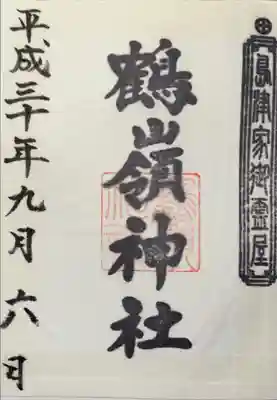 島津家御霊屋
鶴嶺神社
平成三十年九月六日